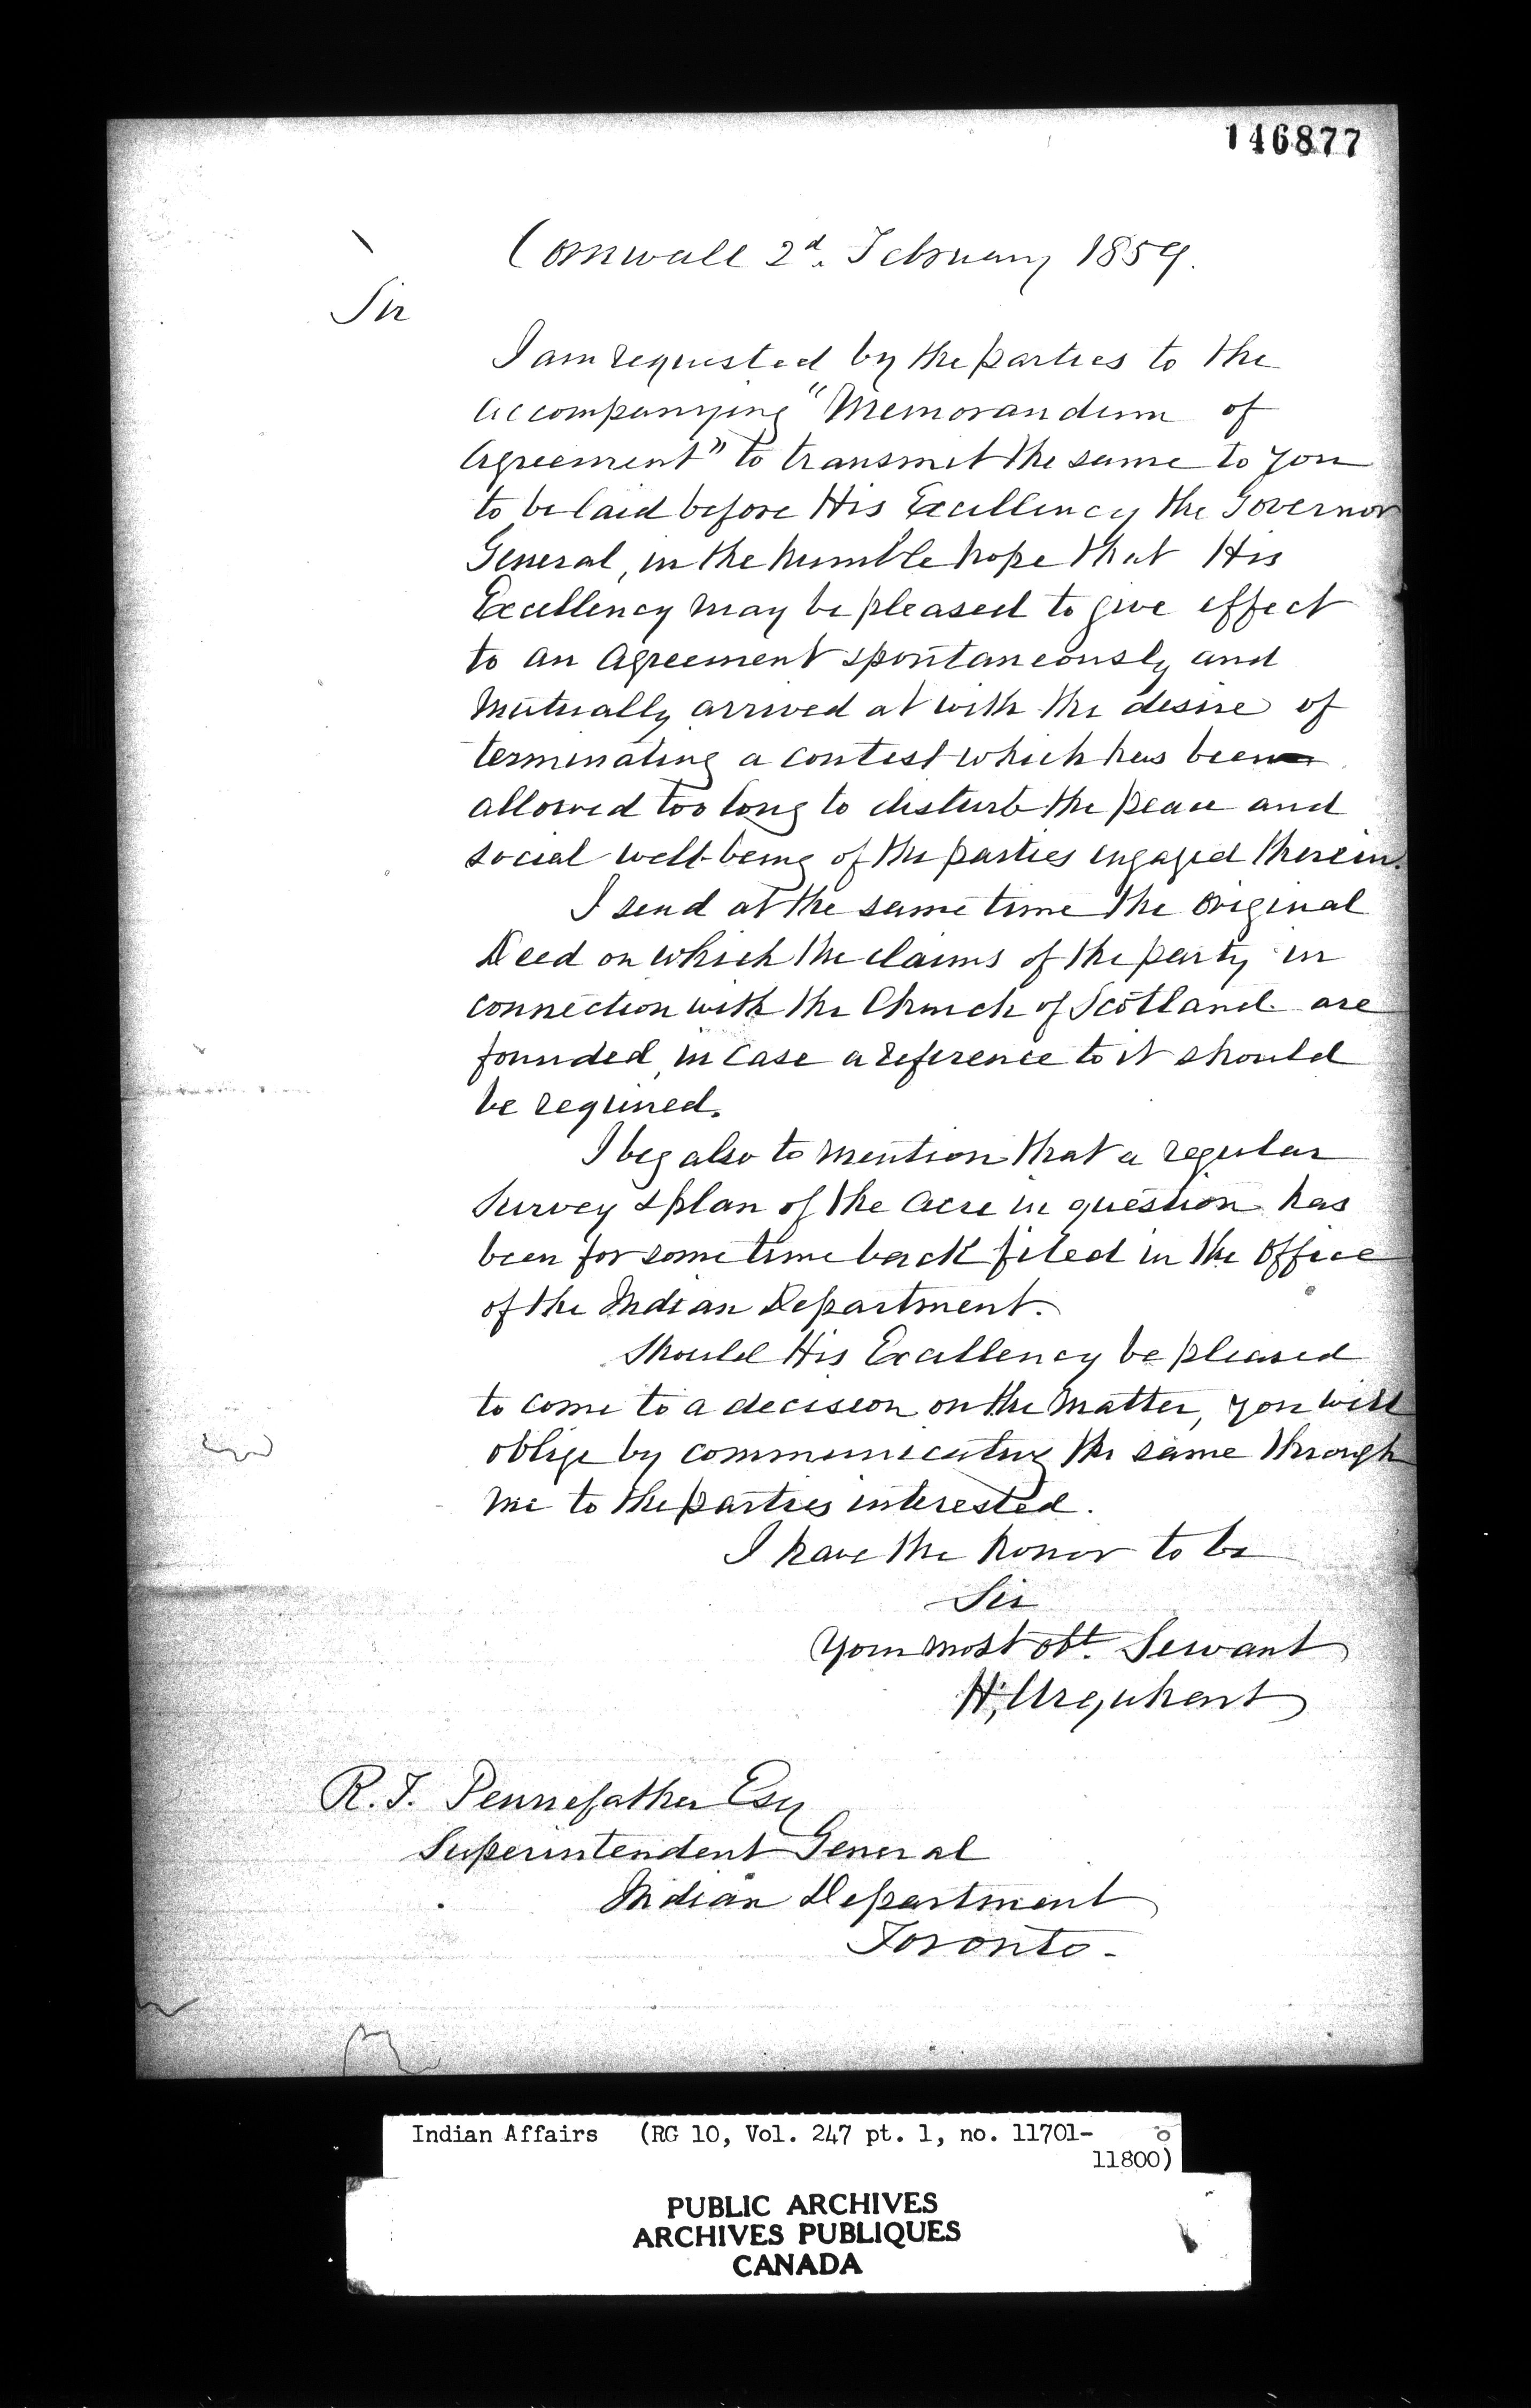 146877
Cornwall 2d. February 1859.
Sir
I am requested by the parties to the
accompanying "Memorandum of
Agreement" to transmit the same to you
to be laid before His Excellency the Governor
General, in the humble hope that His
Excellency may be pleased to give effect
to an Agreement spontaneously and
mutually arrived at with the desire of
terminating a contest which has been
allowed too long to disturb the peace and
social well-being of the parties engaged therein.
I send at the same time the original
Deed on which the claims of the party in
connection with the Church of Scotland are
founded, in case a reference to it should
be required.
I beg also to mention that a regular
survey & plan of the acre in question has
been for some time back filed in the Office
of the Indian Department.
Should His Excellency be pleased
to come to a decision on the matter, you will
oblige by communicating the same through
me to the parties interested.
I have the honor to be
Sir
Your most obt. Servant
H. Urquhart
R. T. Pennefather Esq
Superintendent General
Indian Department
Toronto.
Indian Affairs (RG 10, Vol. 247 pt. 1, no. 11701-
11800)
PUBLIC ARCHIVES
ARCHIVES PUBLIQUES
CANADA